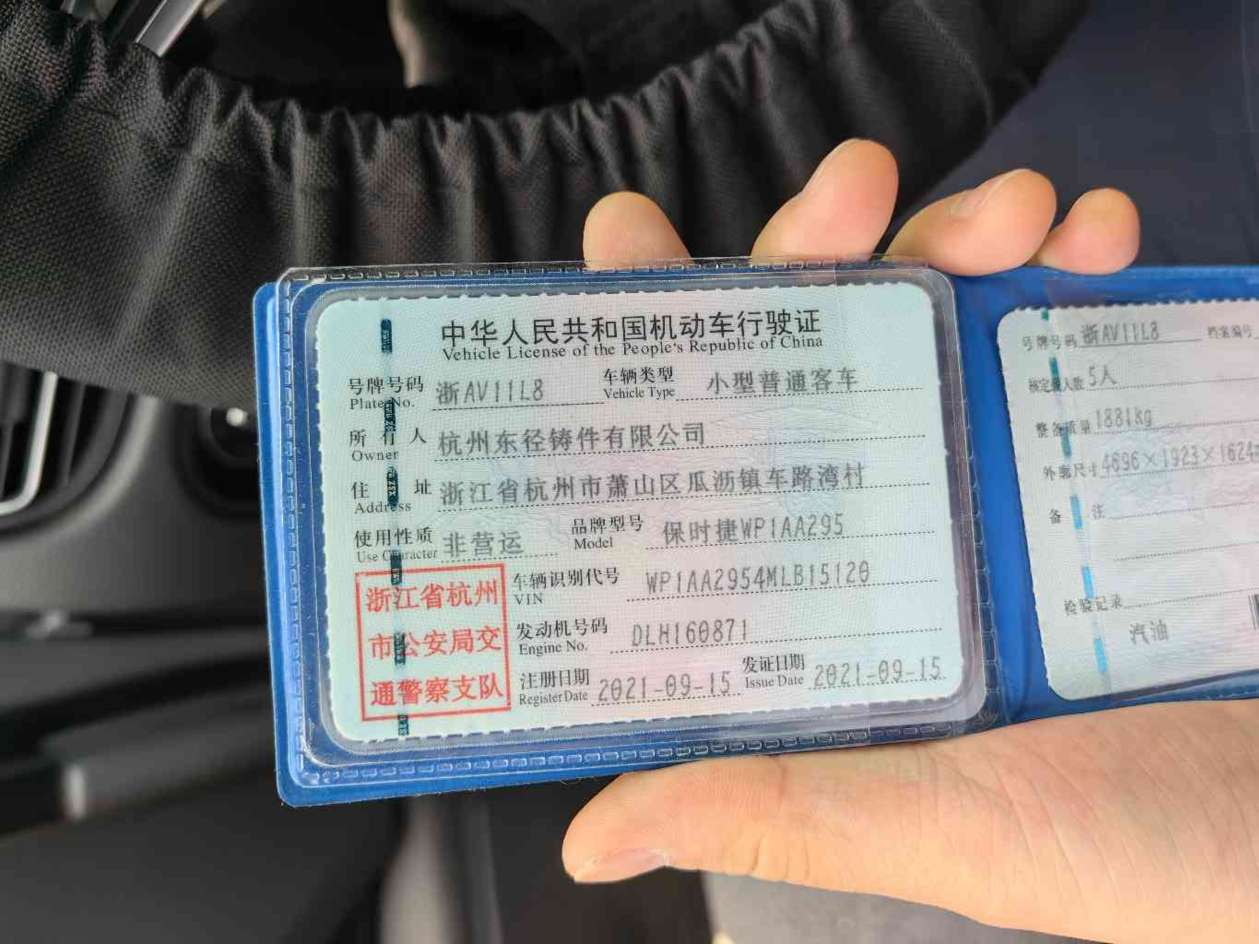 中华人民共和国机动车行驶证
Vehicle License of the People's Republic of China
号牌号码 浙AV11L8 车辆类型 小型普通客车
Plate No. Vehicle Type
所有人 杭州东径铸件有限公司
Owner
住址 浙江省杭州市萧山区瓜沥镇车路湾村
Address
使用性质 非营运 品牌型号 保时捷WP1AA295
Use Character Model
浙江省杭州
市公安局交
通警察支队
车辆识别代号 WP1AA2954MLB15120
VIN
发动机号码 DLH160871
Engine No.
注册日期 2021-09-15 发证日期 2021-09-15
Register Date Issue Date
号牌号码 浙AV11L8 档案编号
核定载人数 5人
整备质量 1881kg
外廓尺寸 4696×1923×1624
备注
检验记录
汽油